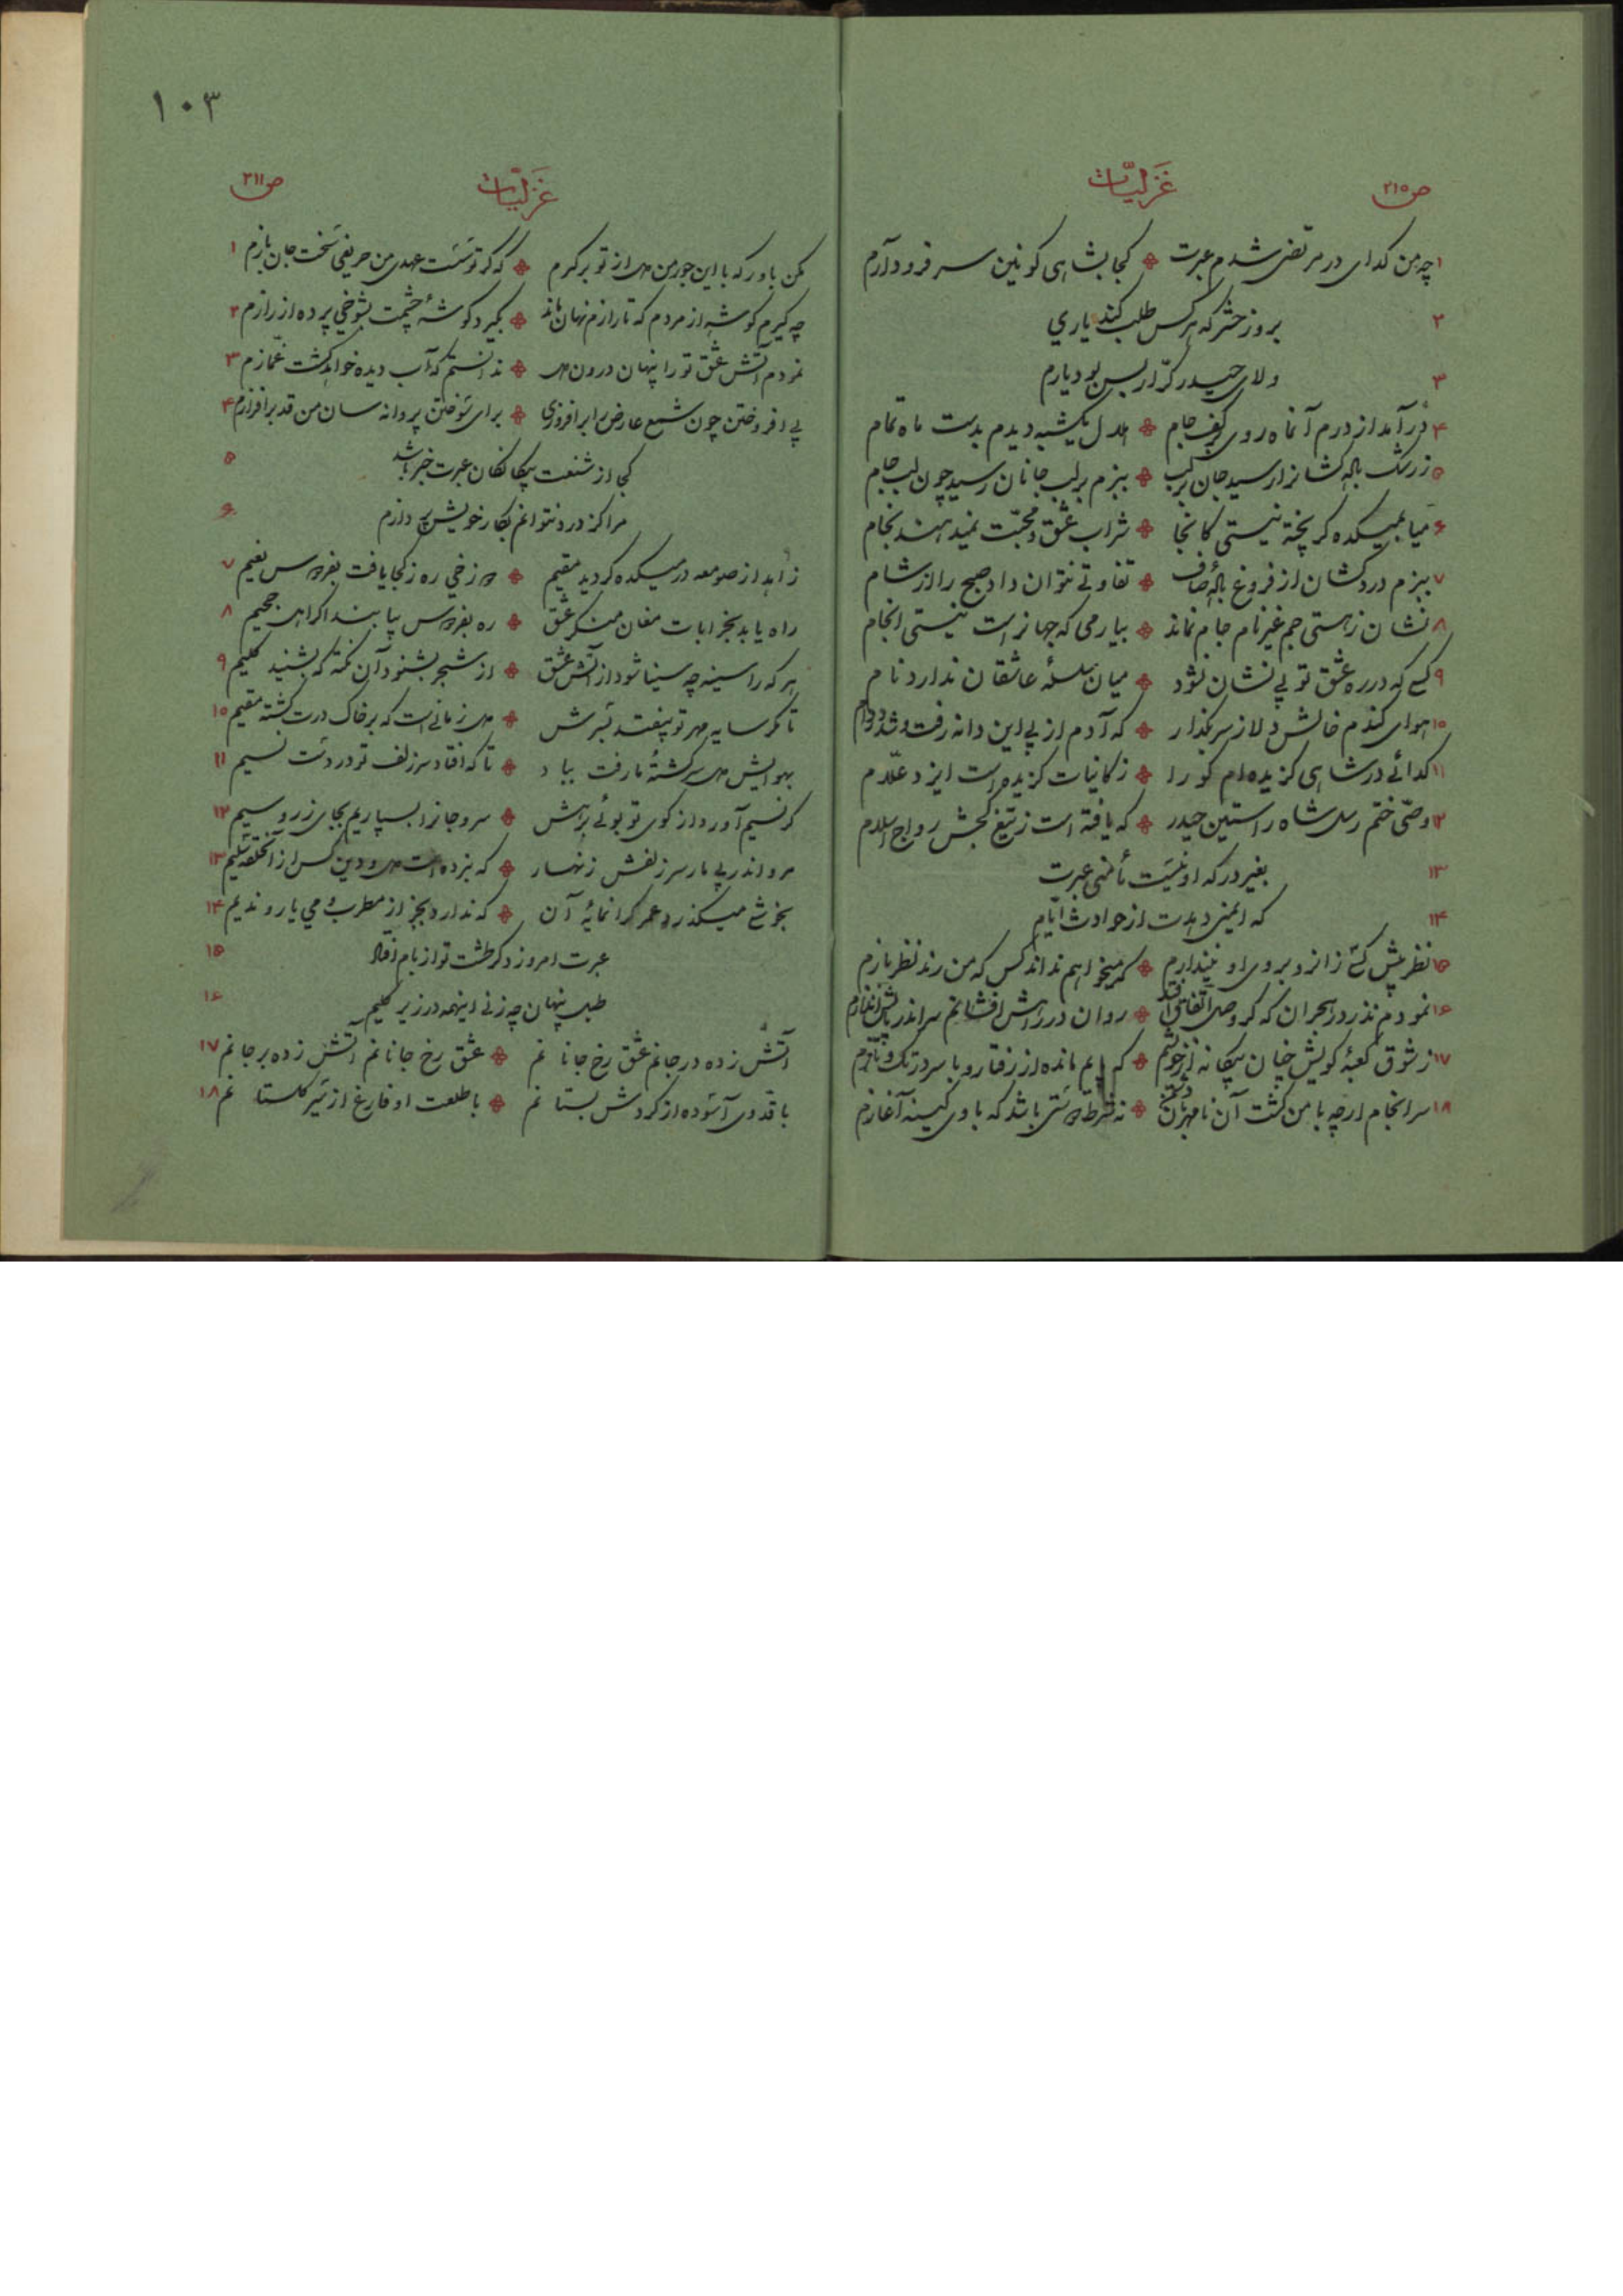 ص ۲۱۰
غَزَلیّات
۱ چه من گدای در مرتضی شدم عبرت ❉ کجا بشاهی کونین سر فرود آرم
۲ بروز حشر که هر کس طلب کند یاري
۳ ولای حیدر کرّار بس بود یارم
۴ درآمد از درم آنماه روی بر کف جام ❉ هلال یکشبه دیدم بدست ماه تمام
۵ ز رشک باده کشانرا رسید جان بر لب ❉ ببزم بر لب جانان رسید چون لب جام
۶ میا بمیکده گر پخته نیستی کانجا ❉ شراب عشق و محبّت نمیدهند بخام
۷ ببزم دردکشان از فروغ بادهٔ صاف ❉ تفاوتی نتوان داد صبح را از شام
۸ نشان ز هستی جم غیر نام جام نماند ❉ بیار می که جهانراست نیستی انجام
۹ کسی که در ره عشق تو بی نشان نشود ❉ میان سلسلهٔ عاشقان ندارد نام
۱۰ هوای گندم خالش دلا ز سر بگذار ❉ که آدم از پی این دانه رفت و شد در دام
۱۱ گدائے در شاهی گزیده‌ام کو را ❉ ز کاینات گزیده است ایزد علّام
۱۲ وصّی ختم رسل شاه راستین حیدر ❉ که یافته است ز تیغ کجش رواج اسلام
۱۳ بغیر درگه او نیست مأمنی عبرت
۱۴ که ایمنی دهدت از حوادث ایّام
۱۵ نظر پیش کسی زانرو بروی او نیندازم ❉ که میخواهم نداند کس که من رند نظر بازم
۱۶ نمودم نذر در هجران که گر وصل اتفاق افتد ❉ روان در رهش افشانم سر اندر پایش اندازم
۱۷ ز شوق کعبهٔ کویش چنان بیگانه از خویشم ❉ که پایم مانده از رفتار و با سر در تک و تازم
۱۸ سرانجام ارچه با من گشت آن نامهربان دشمن ❉ نه شرط دوستی باشد که با وی کینه آغازم
۱۰۳
غَزَلیّات
ص ۲۱۱
مکن باور که با این جور من دل از تو برگیرم ❉ که گر تو سست عهدی من حریفی سخت جان بازم ۱
چه گیرم گوشه از مردم که تا رازم نهان ماند ❉ بگیرد گوشهٔ چشمت بشوخی پرده از رازم ۲
نمودم آتش عشق تو را پنهان درون دل ❉ ندانستم که آب دیده خواهد گشت غمّازم ۳
پی افروختن چون شمع عارض را برافروزی ❉ برای سوختن پروانه سان من قد برافرازم ۴
کجا از شنعت بیگانگان عبرت خبر باشد ۵
مرا کز درد نتوانم بکار خویش پردازم ۶
زاهد از صومعه در میکده گردید مقیم ❉ دوزخی ره ز کجا یافت بفردوس نعیم ۷
راه یابد بخرابات مغان منکر عشق ❉ ره بفردوس بیابند اگر اهل جحیم ۸
هر که را سینه چه سینا شود از آتش عشق ❉ از شجر بشنود آن نکته که بشنید کلیم ۹
تا مگر سایه مهر تو بیفتد بسرش ❉ دل زمانیست که بر خاک درت گشته مقیم ۱۰
بهوایش دل سرگشتهٔ ما رفت بباد ❉ تا که افتاد سر زلف تو در دست نسیم ۱۱
گر نسیم آورد از کوی تو بوئے برهش ❉ سر و جانرا بسپاریم بجای زر و سیم ۱۲
مرو اندر پی مار سر زلفش زنهار ❉ که نبرده است دل و دین کس از آنحلقه سلیم ۱۳
بخوشی میگذرد عمر گرانمایهٔ آن ❉ که ندارد بجز از مطرب و می یار و ندیم ۱۴
عبرت امروز دگر طشت تو از بام افتاد ۱۵
طبل پنهان چه زنی اینهمه در زیر گلیم ۱۶
آتش زده در جانم عشق رخ جانانم ❉ عشق رخ جانانم آتش زده بر جانم ۱۷
با قدّ وی آسوده از گردش بستانم ❉ با طلعت او فارغ از سیر گلستانم ۱۸